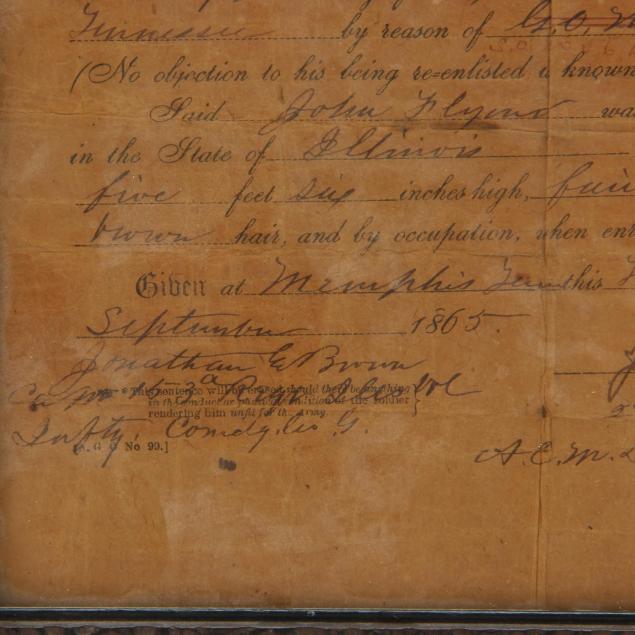 Tennessee by reason of G.O.
(No objection to his being re-enlisted is known
Said John Flynn
in the State of Illinois
five feet six inches high, fair
brown hair, and by occupation, when enr
Given at Memphis Tenn this
September 1865.
Jonathan E Brown
* This sentence will be erased should there be anything
in the conduct or physical condition of the soldier
rendering him unfit for the Army.
Infty, Comdg. Co G.
[A. G. O. No 99.]
A.C.M.